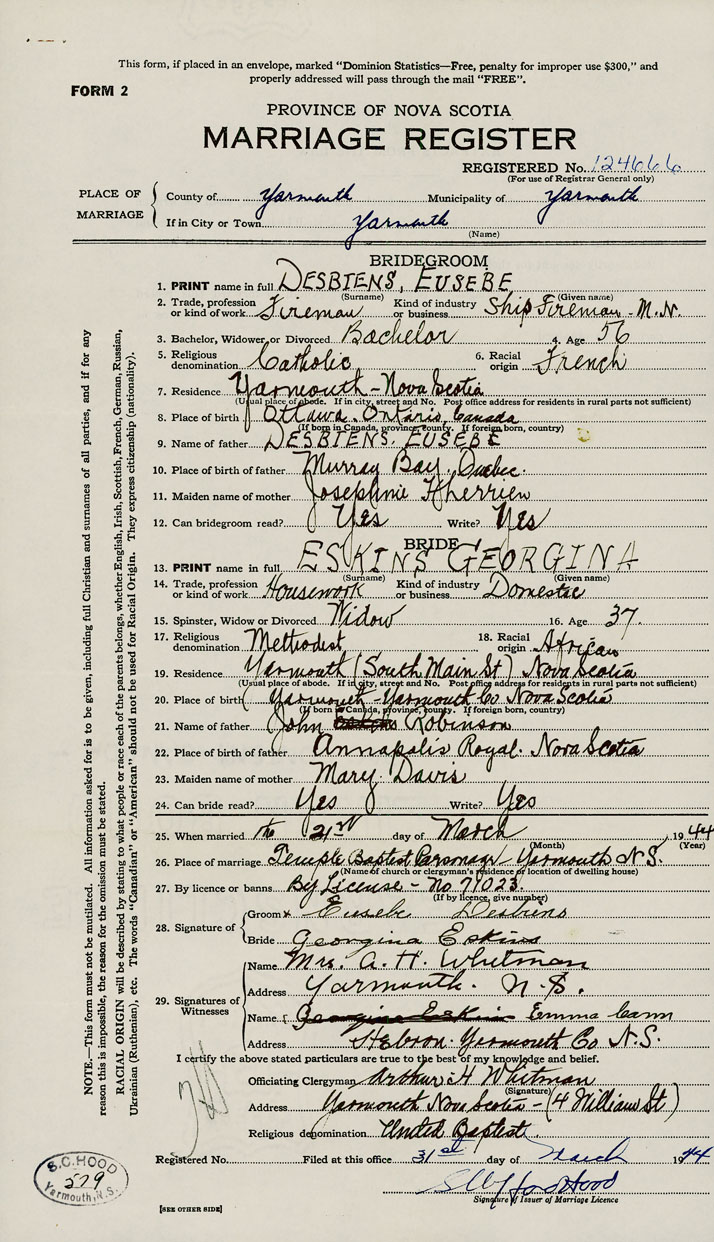 This form, if placed in an envelope, marked "Dominion Statistics—Free, penalty for improper use $300," and
properly addressed will pass through the mail "FREE".
FORM 2
PROVINCE OF NOVA SCOTIA
MARRIAGE REGISTER
REGISTERED No. 124666
(For use of Registrar General only)
PLACE OF MARRIAGE
County of Yarmouth Municipality of Yarmouth
If in City or Town Yarmouth
(Name)
BRIDEGROOM
1. PRINT name in full DESBIENS, EUSEBE
(Surname) (Given name)
2. Trade, profession or kind of work Fireman Kind of industry or business Ship Fireman - M.N.
3. Bachelor, Widower or Divorced Bachelor 4. Age 56
5. Religious denomination Catholic 6. Racial origin French
7. Residence Yarmouth - Nova Scotia
(Usual place of abode. If in city, street and No. Post office address for residents in rural parts not sufficient)
8. Place of birth Ottawa. Ontario, Canada
(If born in Canada, province, county. If foreign born, country)
9. Name of father DESBIENS. EUSEBE
10. Place of birth of father Murray Bay, Quebec.
11. Maiden name of mother Josephine
12. Can bridegroom read? Yes Write? Yes
BRIDE
13. PRINT name in full ESKINS GEORGINA
(Surname) (Given name)
14. Trade, profession or kind of work Housework Kind of industry or business Domestic
15. Spinster, Widow or Divorced Widow 16. Age 37.
17. Religious denomination Methodist 18. Racial origin African
19. Residence Yarmouth (South Main St) Nova Scotia
(Usual place of abode. If in city, street and No. Post office address for residents in rural parts not sufficient)
20. Place of birth Yarmouth - Yarmouth Co Nova Scotia
(If born in Canada, province, county. If foreign born, country)
21. Name of father John Robinson
22. Place of birth of father Annapolis Royal. Nova Scotia
23. Maiden name of mother Mary Davis
24. Can bride read? Yes Write? Yes
25. When married the 21st day of March 1944
(Month) (Year)
26. Place of marriage Temple Baptist Parsonage - Yarmouth N.S.
(Name of church or clergyman's residence or location of dwelling house)
27. By licence or banns By License - No 71023.
(If by licence, give number)
28. Signature of
Groom x Eusebe Desbiens
Bride Georgina Eskins
29. Signatures of Witnesses
Name Mrs. A. H. Whitman
Address Yarmouth. N.S.
Name Georgina Eskins Emma Cann
Address Hebron. Yarmouth Co N.S.
I certify the above stated particulars are true to the best of my knowledge and belief.
Officiating Clergyman Arthur H Whitman
(Signature)
Address Yarmouth Nova Scotia - (4 William St)
Religious denomination United Baptist.
Registered No. Filed at this office 31st day of March 1944
Signature of Issuer of Marriage Licence
[SEE OTHER SIDE]
S.C. HOOD
529
Yarmouth, N.S.
NOTE.—This form must not be mutilated. All information asked for is to be given, including full Christian and surnames of all parties, and if for any
reason this is impossible, the reason for the omission must be stated.
RACIAL ORIGIN will be described by stating to what people or race each of the parents belongs, whether English, Irish, Scottish, French, German, Russian,
Ukrainian (Ruthenian), etc. The words "Canadian" or "American" should not be used for Racial Origin. They express citizenship (nationality).